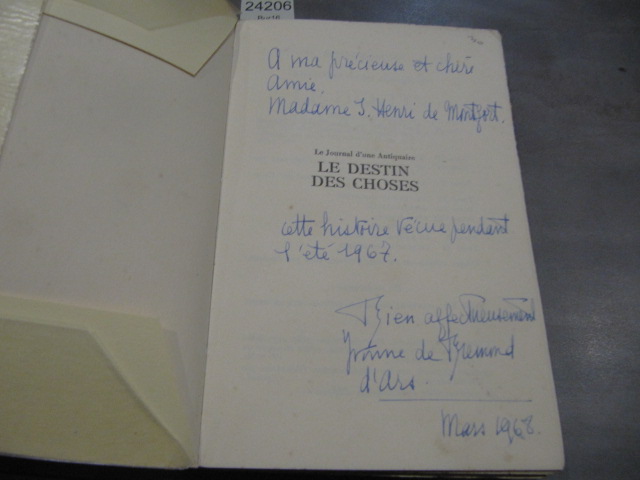 24206
A ma précieuse et chère
Amie,
Madame J. Henri de Montfort,
Le Journal d'une Antiquaire
LE DESTIN
DES CHOSES
cette histoire vécue pendant
l'été 1967.
Bien affectueusement
Yvonne de Bremond
d'Ars.
Mars 1968.